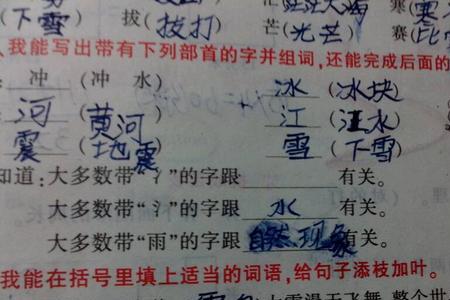 （下雪） 拔（拔打） 芒（光芒） 赛
我能写出带有下列部首的字并组词,还能完成后面的
冲（冲 水） 冰（冰块）
河（黄河） 江（江水）
震（地震） 雪（下雪）
知道:大多数带“冫”的字跟______有关。
大多数带“氵”的字跟 水 有关。
大多数带“雨”的字跟自然现象有关。
我能在括号里填上适当的词语,给句子添枝加叶。